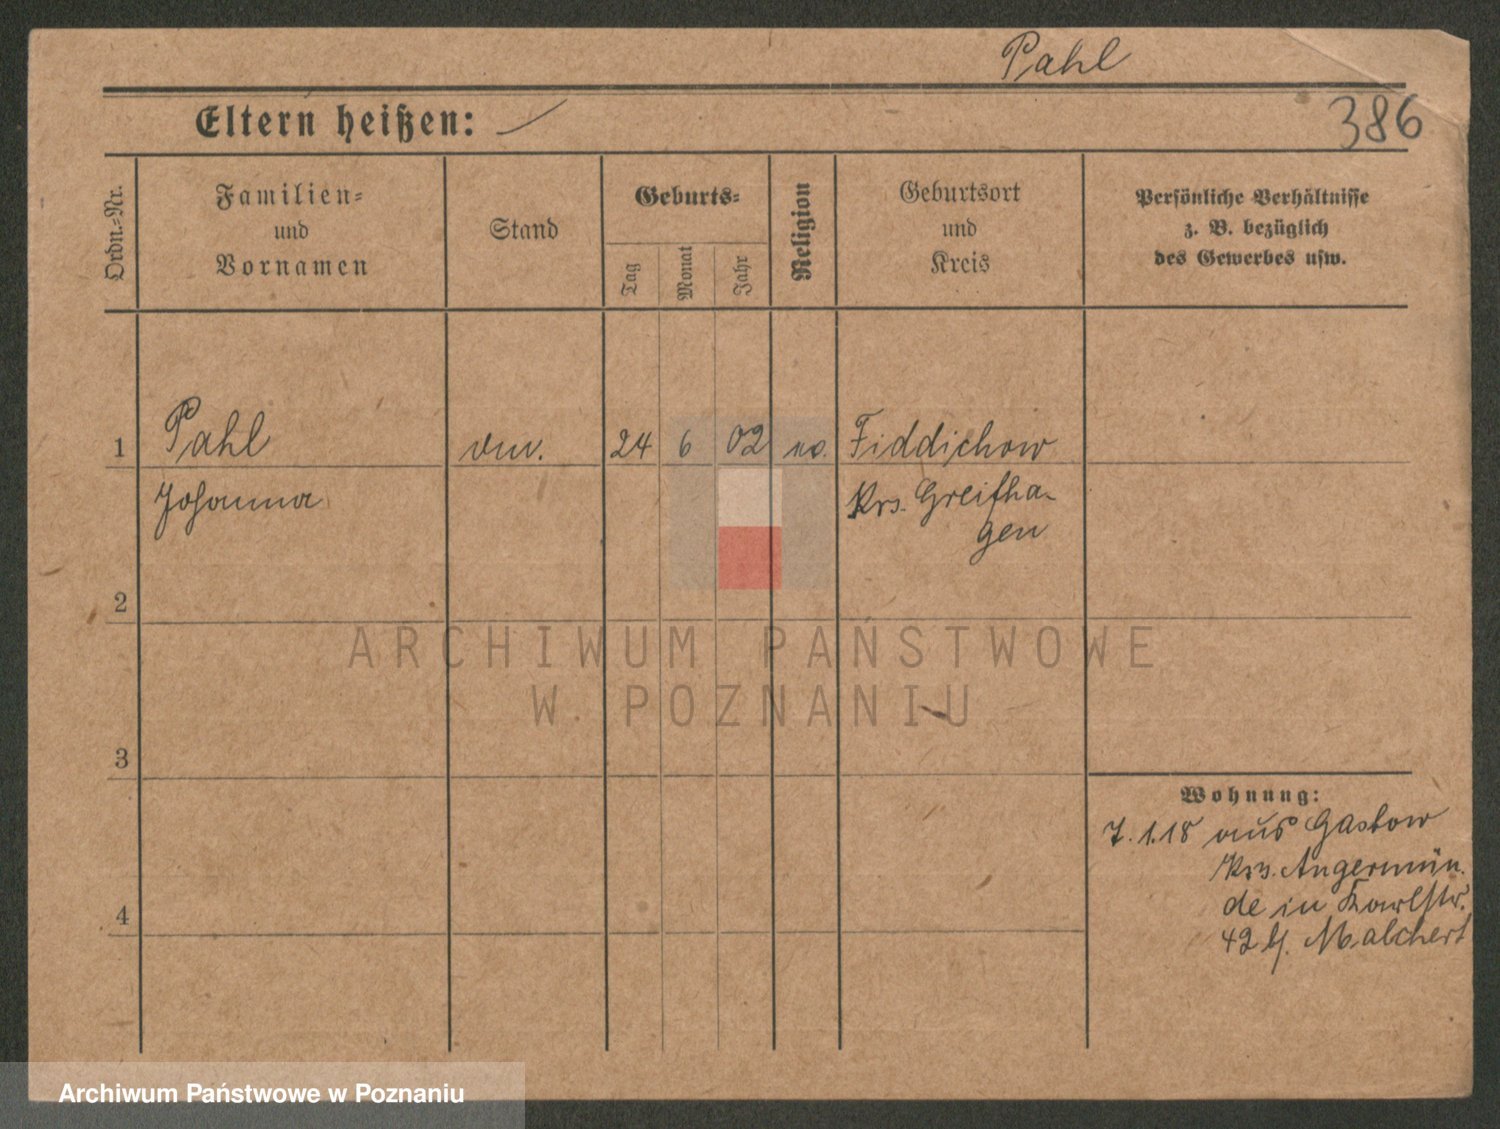 Pahl
386
Eltern heißen:
Ordn.-Nr.
Familien-
und
Vornamen
Stand
Geburts-
Tag
Monat
Jahr
Religion
Geburtsort
und
Kreis
Persönliche Verhältnisse
z. B. bezüglich
des Gewerbes usw.
1
Pahl
24
6
02
Fiddichow
Johanna
Krs. Greifha-
gen
2
3
4
Wohnung:
7.1.18 aus Gastow
Krs. Angermün.
de in Karlstr.
42 b/. Malchert
ARCHIWUM PAŃSTWOWE
W POZNANIU
Archiwum Państwowe w Poznaniu